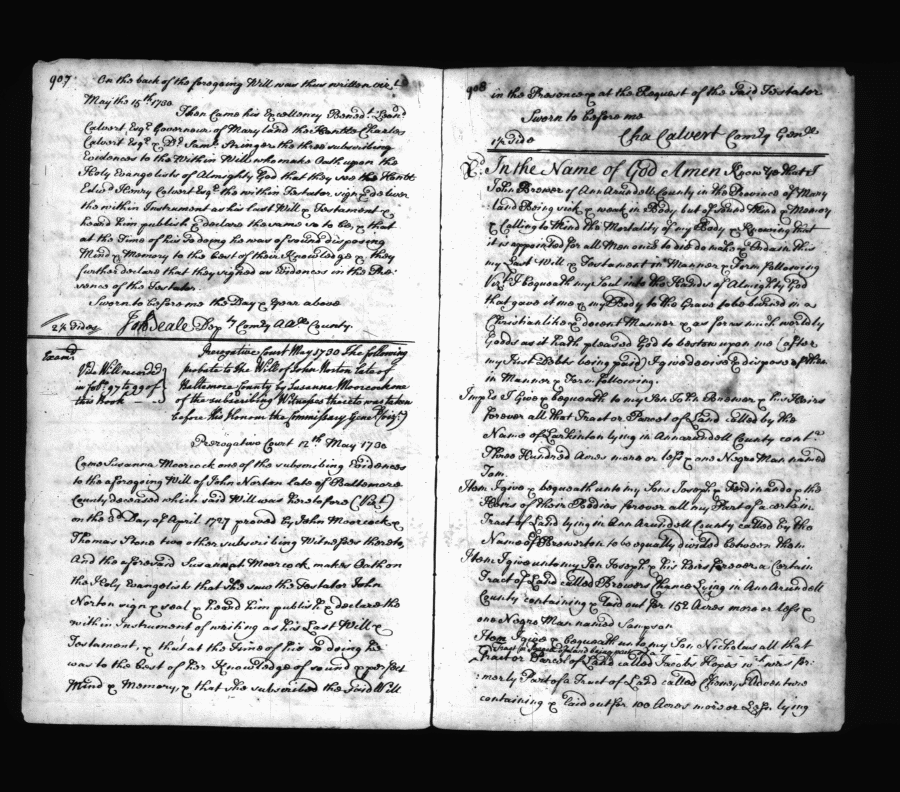 907
On the back of the foregoing Will was thus written viz.t
May the 15th 1730
Then Came his Excellency Bened.t Leon.d
Calvert Esq.r Governour of Maryland the Hon.ble Charles
Calvert Esq.r & D.r Sam.l Stringer the three subscribing
Evidences to the Within Will who make Oath upon the
Holy Evangelists of Almighty God that they see the Hon.ble
Edw.d Henry Calvert Esq.r the within Testator sign
the within Instrument as his last Will & Testament &
heard him publish & declare the same so to be, & that
at the Time of his so doing he was of sound disposing
Mind & Memory to the best of their Knowledge & they
further declare that they signed as Evidences in the Pre:
sence of the Testator.
Sworn to before me the Day & Year above
2¼ Sides
Jn.o Beale Dep.ty Com.ry A A.ll County.
Exam.d
Vide Will record.d
in fol.o 97 to 99 of
this Book
Prerogative Court May 1730 The following
probate to the Will of John Norton late of
Baltemore County by Susanna Moorcock one
of the subscribing Witnesses thereto was taken
before his Honour the Commissary Gen.ll (viz.t)
Prerogative Court 12th May 1730
Came Susanna Moorcock one of the subscribing Evidences
to the aforegoing Will of John Norton late of Baltemore
County deceased which said Will was heretofore (Viz.t)
on the 8th Day of April 1727 proved by John Moorcock &
Thomas Stone two other subscribing Witnesses thereto,
And the aforesaid Susannah Moorcock makes Oath on
the Holy Evangelists that she saw the Testator John
Norton sign & seal & heard him publish & declare the
within Instrument of writing as his Last Will &
Testament, & that at the Time of his so doing he
was to the best of her Knowledge of sound & perfect
Mind & Memory, & that she subscribed the said Will
908
in the Presence & at the Request of the said Testator
Sworn to before me
Cha Calvert Com.ry Gen.ll
1½ Side
In the Name of God Amen Know Ye that I
John Brewer of Ann Arundell County in the Province of Mary
land Being sick & weak in Body but of sound Mind & Memory
& Calling to Mind the Mortality of my Body & Knowing that
it is appointed for all Men once to die do make & Ordain this
my Last Will & Testament in Manner & Form following
Viz.t I bequeath my Soul into the Hands of Almighty God
that gave it me & my Body to the Grave to be buried in a
Christianlike & decent Manner & as for as much worldly
Goods as it hath pleased God to bestow upon me (after
my Just Debts being paid) I give devise & dispose of them
in Manner & Form following.
Imp.s I Give & bequeath to my Son John Brewer & his Heirs
forever all that Tract or Parcel of Land called by the
Name of Larkinton lying in Annarundell County cont.g
Three Hundred Acres more or less & one Negro Man named
Tom.
Item I give & bequeath unto my Sons Joseph & Ferdinando & the
Heirs of their Bodies forever all my Part of a certain
Tract of Land lying in Ann Arundell County called by the
Name of Brewerton to be equally divided between them
Item I give unto my Son Joseph & his Heirs forever a Certain
Tract of Land called Brewers Chance Lying in Ann Arundell
County containing & laid out for 152 Acres more or less &
one Negro Man named Sampson
Item I give & bequeath unto my Son Nicholas all that
Tract or Parcel of Land being part
Tract or Parcel of Land called Jacobs Hopes w.ch was for:
merly Part of a Tract of Land called Cheneys Adventure
containing & laid out for 100 Acres more or less lying